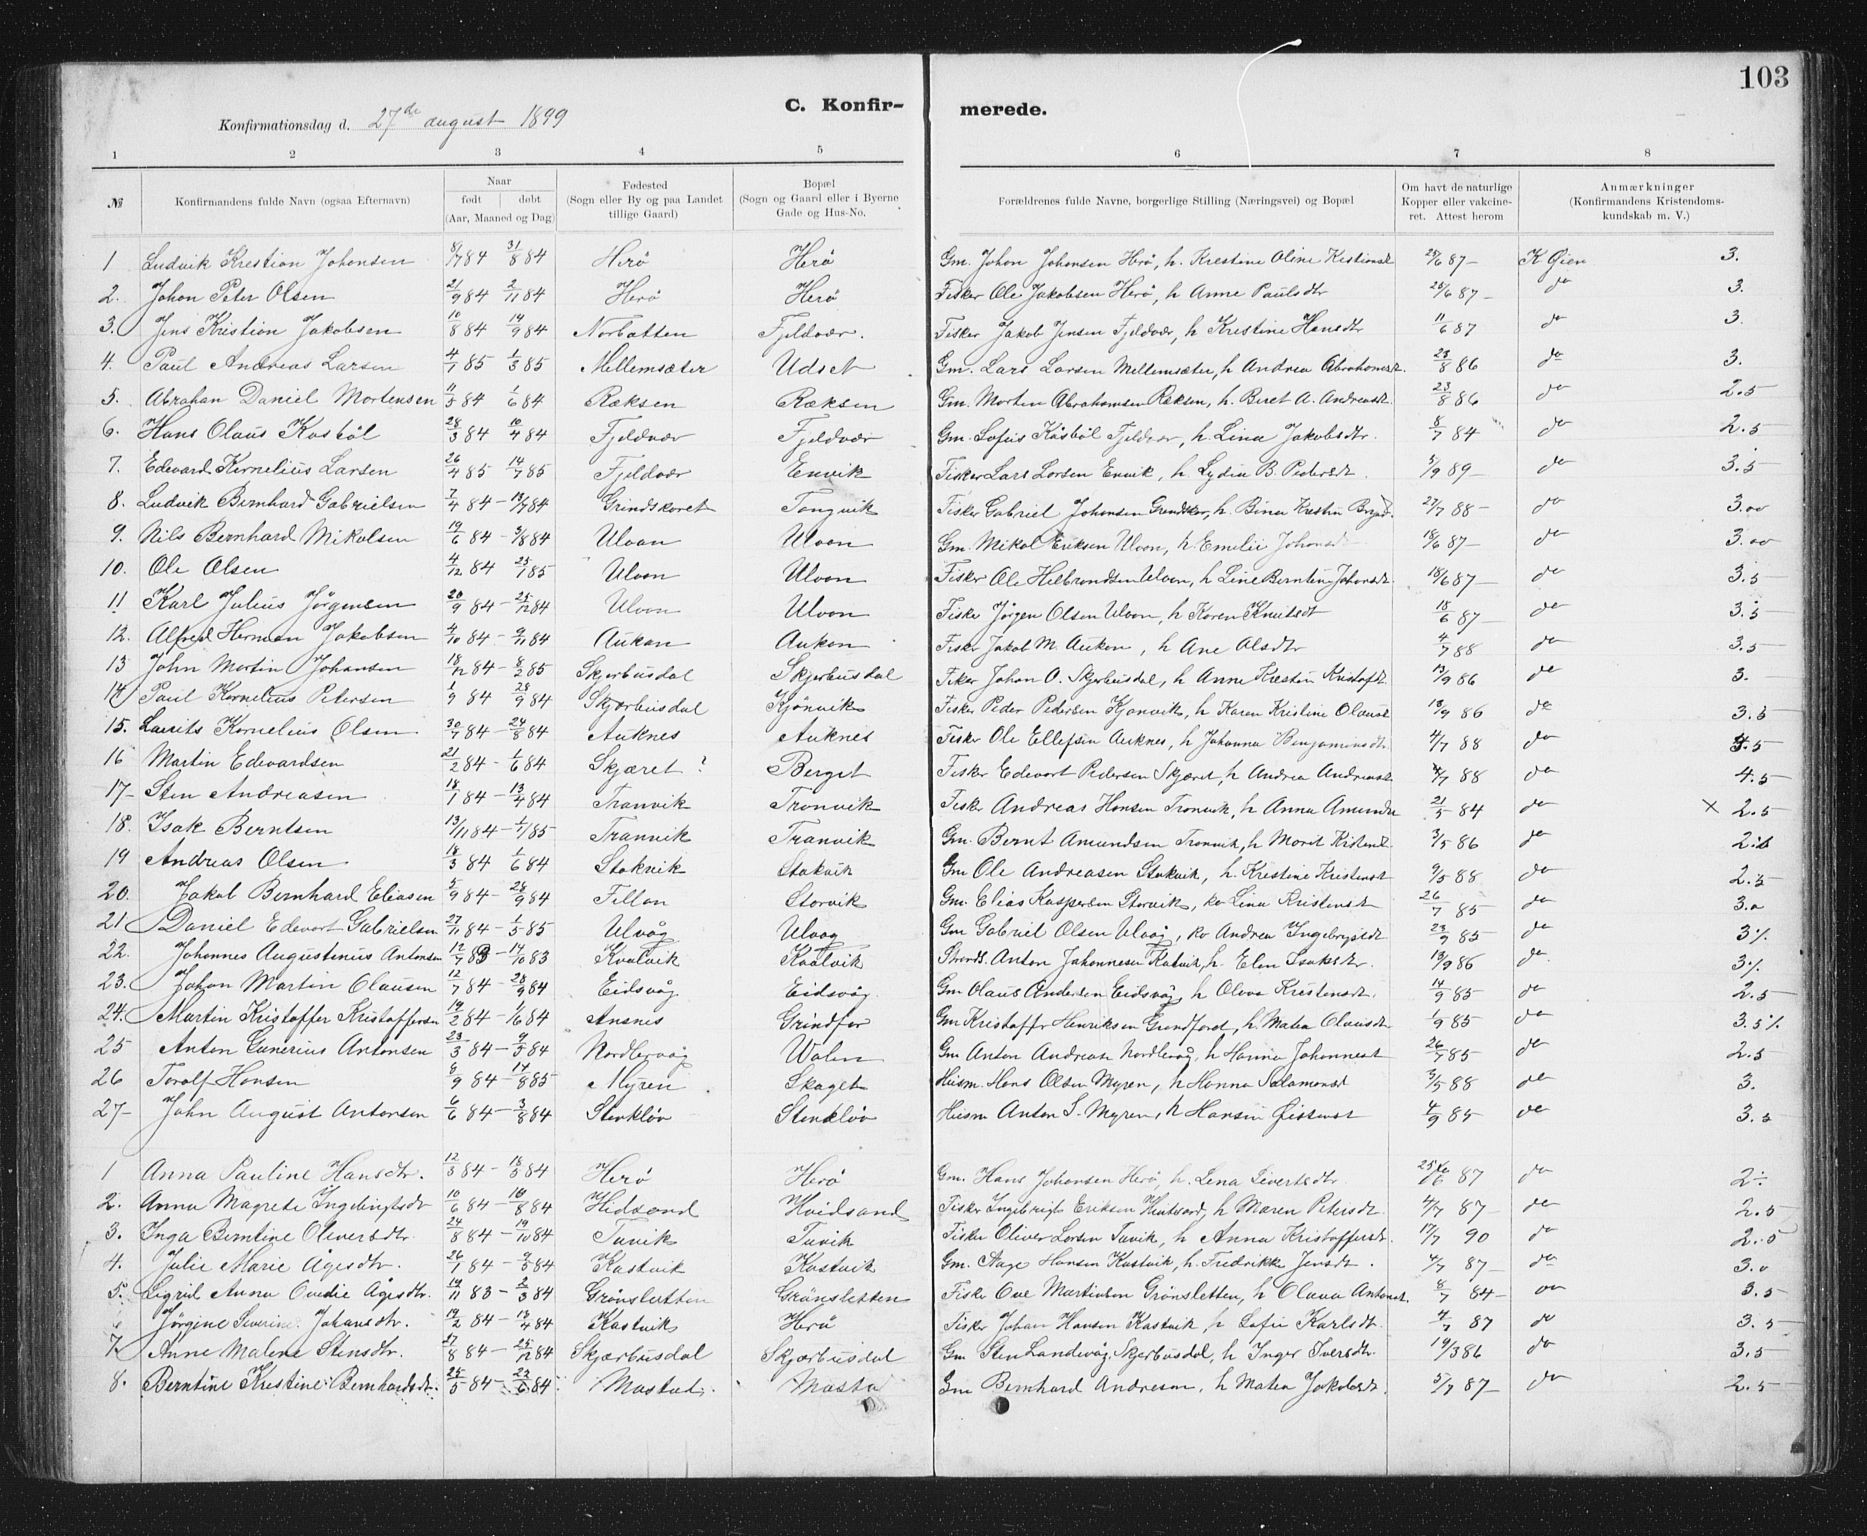 103
C. Konfir- merede.
Konfirmationsdag d. 27de august 1899
1 2 3 4 5 6 7 8
№ Konfirmandens fulde Navn (ogsaa Efternavn) Naar født døbt (Aar, Maaned og Dag) Fødested (Sogn eller By og paa Landet tillige Gaard) Bopæl (Sogn og Gaard eller i Byerne Gade og Hus-No. Forældrenes fulde Navne, borgerlige Stilling (Næringsvei) og Bopæl Om havt de naturlige Kopper eller vakcineret. Attest herom Anmærkninger (Konfirmandens Kristendomskundskab m. V.)
1 Ludvik Krestian Johansen 8/7 84 31/8 84 Herö Herö Gm. Johan Johansen Herö, h. Krestine Oline 6 87 K Øien 3.
2. Johan Peter Olsen 21/9 84 2/11 84 Herö Herö Fisker Ole Jakobsen Herö, h Anne Paulsdtr 25/6 87 do 3.
3. Jens Kristian Jakobsen 10/8 84 14/9 84 Norbotten Fjeldvær. Fisker Jakob Jensen Fjeldvær, h Kristine Hansdtr 11/6 87 do 3.
4. Paul Andreas Larsen 4/1 85 1/3 85 Mellemsæter Udset Gm. Lars Larsen Mellemsæter, h Andrea Abrahamsdt. 23/8 86 do 3.
5. Abrahan Daniel Mortensen 11/5 84 1/6 84 Ræksen Ræksen Gm. Morten Abrahamsen Ræksen, h. Beret A. Andreasdt. 23/8 86 do 2.5
6. Hans Olaus Kasböl 28/3 84 10/4 84 Fjeldvær Fjeldvær Gm. Sofus Kåsböl Fjeldvær, h. Lina Jakobsdtr. 8/7 84 do 2.5
7. Edevard Kornelius Larsen 26/4 85 14/7 85 Fjeldvær Envik Fisker Lars Larsen Envik, h Lydia B. Pedersdt 5/9 89 do 3.5
8. Ludvik Bernhard Gabrielsen 7/4 84 - 13/7 84 Grindskaret Tongvik Fisker Gabriel Johansen Grendskar, h. Bina Krestin 27/7 88 - do 3.00
9. Nils Bernhard Mikalsen 19/6 84 - 3/8 84 Ulvan Ulvan Gm. Mikal Eriksen Ulvan, h. Emelie Johansdt 18/6 87 - do 3.00
10. Ole Olsen 4/12 84 25/1 85 Ulvan Ulvan Fisker Ole Helbrandsen Ulvan, h Line Berntine Johansdt. 18/6 87 - do 3.5
11 Karl Julius Jørgensen 20/9 84 - 25/12 84 Ulvan Ulvan Fiske Jørgen Olsen Ulvan, h Karen Knutsdt 18/6 87 - do 3.5
12. Alfred Herman Jakobsen 4/10 84 - 9/11 84 Aukan Aukan Fisk. Jakob M. Aukan, h Ane Olsdtr 4/7 88 do 3.5
13 John Martin Johansen 18/12 84 - 8/2 85 Skjerbusdal Skjerbusdal Fisker Johan O. Skjerbusdal, h Anne Krestin Kristofdt. 13/9 86 do 3.
14 Paul Kornelius Petersen 1/9 84 28/9 84 Skjærbusdal Kjönvik Fisker Peder Pedersen Kjonvik, h Karen Kristine Olausdt 13/9 86 do 3.5
15. Laurits Kornelius Olsen 30/7 84 - 24/8 84 Auknes Auknes Fisker Ole Ellefsen Auknes, h Johanna Benjaminsdtr. 4/7 88 do 5
16 Martin Edevardsen 21/2 84 - 1/6 84 Skjæret ? Berget Fisker Edevart Pedersen Skjæret, h Andrea Andreasdt. 4/7 88 do 4.5
17 - Sten Andreasen 18/1 84 - 13/4 84 Tranvik Tranvik Fisker Andreas Hansen Tranvik, h Anna 21/5 84 do × 2.5
18. Isak Berntsen 13/11 84 - 1/1 85 Tranvik Tranvik Gm. Bernt Amundsen Tranvik, h Moret 3/5 86 do 2.
19 Andreas Olsen 18/3 84 1/6 84 Stokvik Stokvik Gm Ole Andreasen Stokvik, h. Kristine Kristensdt 9/5 88 do 2.5
20. Jakob Bernhard Eliasen 5/9 84 - 28/9 84 Fillan Storvik Gm. Elias Kaspersen Storvik, ko Lina Kristensdt 26/7 85 do 3.0
21 Daniel Edevart Gabrielsen 27/11 84 - 1/5 85 Ulvåg Ulvag Gm Gabriel Olsen Ulvåg, ko Andrea Ingebrigtsdt 23/9 85 do 3%
22. Johannes Augustinus Antonsen 12/7 83 - 14/10 83 Kvalvik Kvalvik Strands. Anton Johannesen h. Elen Isaksdtr. 13/9 86 do 3%
23. Johan Martin Olausen 12/7 84 - 28/9 84 Eidsvåg Eidsvåg Gm Olaus Andersen Eidsvåg, h Olava Kristensdt. 14/9 85 do 2.5
24. Martin Kristoffer Kristoffersen 19/2 84 - 1/6 84 Ansnes Grindfar Gm Kristoffr Henriksen Grendfard, h. Matea Olausdtr 1/9 85 do 3.5%
25 Anton Gunerius Antonsen 23/3 84 - 9/5 84 Nordlervåg Walen Gm Anton Andreasn Nordlevåg, h Hanna Johannesdt 26/7 85 do 2.5
26 Torolf Hansen 8/9 84 - 14/8 85 Myren Skaget Husm. Hans Olsen Myren, h Hanna Salamonsdt 3/5 88 do 3.
27 - John August Antonsen 6/6 84 - 3/8 84 Stenkløv Stenkløv Husm Anton S. Myren, h Hansin Øistensdt 4/9 85 do 3.5
1 Anna Pauline Hansdtr. 12/3 84 - 18/5 84 Herö Herö Gm. Hans Johansen Herö, h. Lena Sivertsdtr 25/6 87 do 2÷
2. Anna Magrete Ingebrigtsdt 10/6 84 - 10/8 84 Hidsand Hvidsand Fisker Ingebrigt Eriksen h Maren Petersdt 4/7 87 - do 2.5
3. Inga Berntine Oliversdtr 24/8 84 - 19/10 84 Tuvik Tuvik Fisker Oliver Larsen Tuvik, h Anna Kristoffersdt. 17/7 90 do 2.5
4. Julie Marie Ågesdtr. 26/1 84 - 84 Kastvik Kastvik Gm. Aage Hansen Kastvik, h. Fredrikke Jensdt. 4/7 87 - do 3.0
5. Sigril Anna Ovedie Ågesdtr. 19/11 83 - 2/3 84 Grönsletten Grönsletten Fisker Ove Martinsen Grönsletten, h Olava Antonsdt. 8/7 84 - do 3.5
Jörgine Severine Johansdtr. 19/2 84 - 13/4 84 Kastvik Herö Fisker Johan Hansen Kastvik, h Sofie Karlsdt. 4/7 87 do 3.5
7. Anne Malene Stensdtr. 27/8 84 - 25/12 84 Skjærbusdal Skjærbusdal Gm Sten Landevåg Skjerbusdal, h Inger Iversdtr. 19/3 86 do 3.5
8. Berntine Kristine Bernhardsdt. 25/5 84 - 22/6 84 Mastad. Masta Gm Bernhard Andresen, h Matea Jakobsdt. 5/7 87 - do 2.5